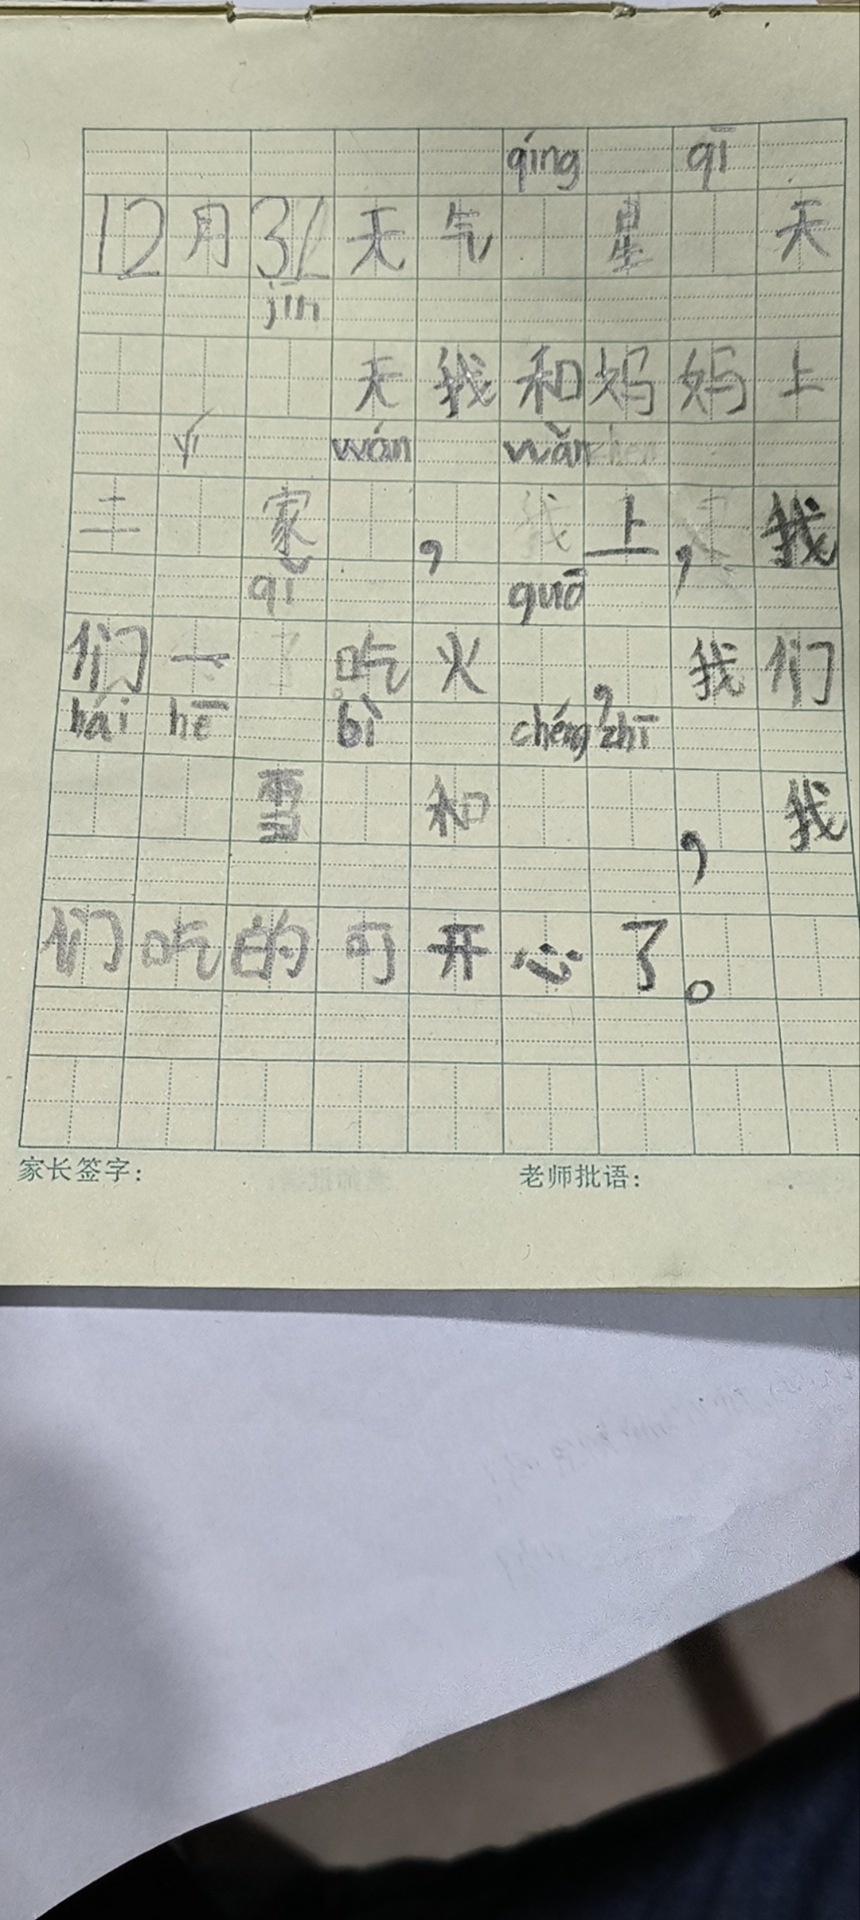 qíng qī
12月31天气 星 天
jīn
天我和妈妈上
yí wán wǎn
二 家 , 上,我
qǐ guō
们一 吃火 ,我们
hái hē bì chéng zhī
雪 和 ,我
们吃的可开心了。
家长签字: 老师批语: